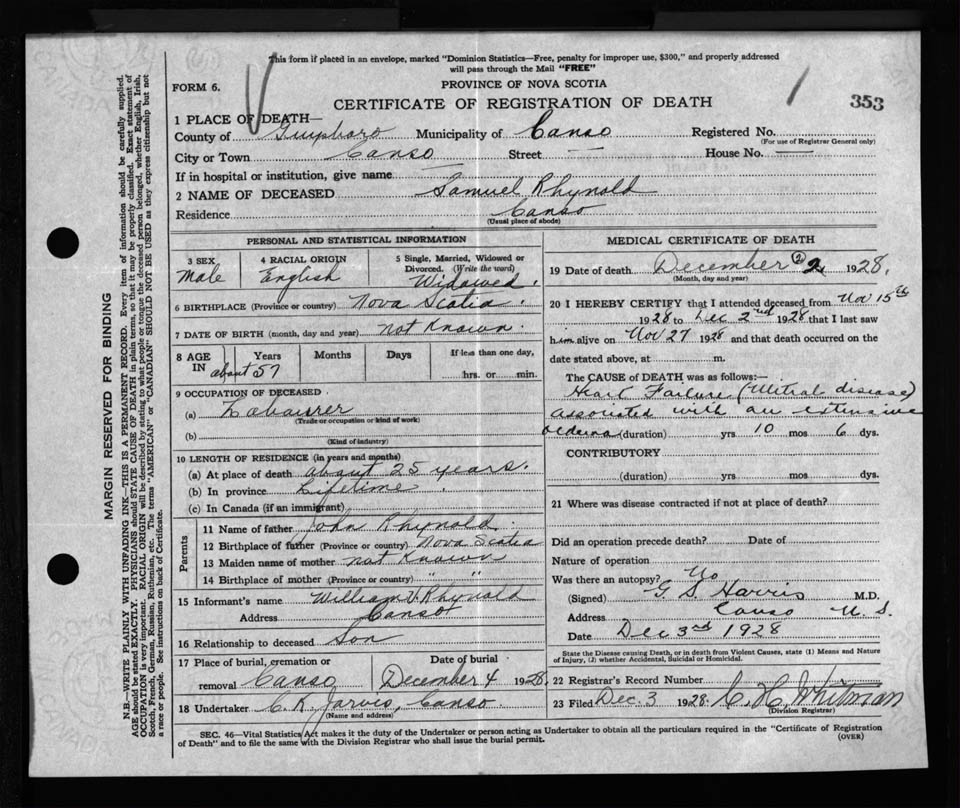 This form if placed in an envelope, marked "Dominion Statistics—Free, penalty for improper use, $300," and properly addressed
will pass through the Mail "FREE"
FORM 6.
PROVINCE OF NOVA SCOTIA
CERTIFICATE OF REGISTRATION OF DEATH
353
1 PLACE OF DEATH—
County of Guysboro Municipality of Canso Registered No.
(For use of Registrar General only)
City or Town Canso Street — House No. —
If in hospital or institution, give name —
2 NAME OF DECEASED Samuel Rhynold
Residence Canso
(Usual place of abode)
MARGIN RESERVED FOR BINDING
N.B.—WRITE PLAINLY WITH UNFADING INK—THIS IS A PERMANENT RECORD. Every item of information should be carefully supplied.
AGE should be stated EXACTLY. PHYSICIANS should STATE CAUSE OF DEATH in plain terms, so that it may be properly classified. Exact statement of
OCCUPATION is very important. RACIAL ORIGIN will be described by stating to what people or tongue the deceased person belonged, whether English, Irish,
Scotch, French, German, Russian, Ruthenian, etc. The terms "AMERICAN" or "CANADIAN" SHOULD NOT BE USED as they express citizenship but not
a race or people. See instructions on back of Certificate.
PERSONAL AND STATISTICAL INFORMATION
3 SEX
Male
4 RACIAL ORIGIN
English
5 Single, Married, Widowed or
Divorced. (Write the word)
Widowed.
6 BIRTHPLACE (Province or country) Nova Scotia.
7 DATE OF BIRTH (month, day and year) not Known.
8 AGE IN Years Months Days If less than one day,
about 57 hrs. or min.
9 OCCUPATION OF DECEASED
(a) Labourer
(Trade or occupation or kind of work)
(b)
(Kind of industry)
10 LENGTH OF RESIDENCE (in years and months)
(a) At place of death about 25 years.
(b) In province Lifetime.
(c) In Canada (if an immigrant)
Parents
11 Name of father John Rhynold.
12 Birthplace of father (Province or country) Nova Scotia
13 Maiden name of mother not Known
14 Birthplace of mother (Province or country) " "
15 Informant's name William V. Rhynold
Address Canso
16 Relationship to deceased Son
17 Place of burial, cremation or
removal Canso
Date of burial
December 4 1928.
18 Undertaker C. R. Jarvis, Canso.
(Name and address)
MEDICAL CERTIFICATE OF DEATH
19 Date of death December 2 2, 1928.
(Month, day and year)
20 I HEREBY CERTIFY that I attended deceased from Nov 15th
1928 to Dec 2nd 1928 that I last saw
him alive on Nov 27 1928 and that death occurred on the
date stated above, at m.
The CAUSE of DEATH was as follows:—
Heart Failure (Mitral disease)
associated with an extensive
oedema (duration) yrs 10 mos 6 dys.
CONTRIBUTORY
(duration) yrs. mos. dys.
21 Where was disease contracted if not at place of death?
Did an operation precede death? Date of
Nature of operation
Was there an autopsy? No
(Signed) G. S. Harris M.D.
Address Canso N. S.
Date Dec 3rd 1928
State the Disease causing Death, or in death from Violent Causes, state (1) Means and Nature
of Injury, (2) whether Accidental, Suicidal or Homicidal.
22 Registrar's Record Number
23 Filed Dec. 3 1928. C. H. Whitman
(Division Registrar)
SEC. 46—Vital Statistics Act makes it the duty of the Undertaker or person acting as Undertaker to obtain all the particulars required in the "Certificate of Registration
of Death" and to file the same with the Division Registrar who shall issue the burial permit.
(OVER)